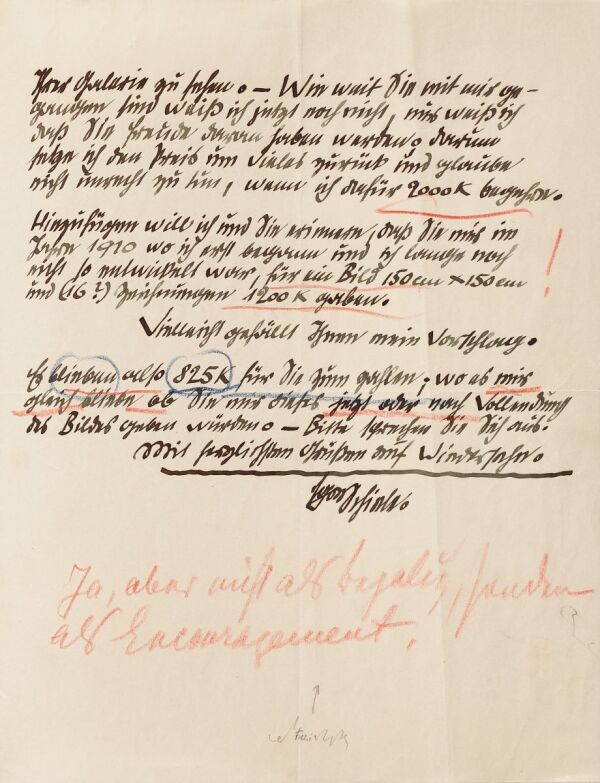 Ihrer Galerie zu sehen. – Wie weit Sie mit mir ge-
gangen sind weiß ich jetzt noch nicht, nur weiß ich
daß Sie Freude daran haben werden; darum
setze ich den Preis um Vieles zurück und glaube
nicht unrecht zu tun, wenn ich dafür 2000 K begehre.
Hinzufügen will ich und Sie erinnern, daß Sie mir im
Jahre 1910 wo ich erst begann und ich lange noch
nicht so entwickelt war, für ein Bild 150 cm × 150 cm
und (16?) Zeichnungen 1200 K gaben.
!
Vielleicht gefällt Ihnen mein Vorschlag.
Es blieben also 825 K für Sie zum zahlen; wo es mir
gleich bliebe ob Sie mir dieses jetzt oder nach Vollendung
des Bildes geben würden. – Bitte sprechen Sie Sich aus.
Mit herzlichsten Grüßen auf Wiedersehn.
Egon
Schiele.
Ja, aber nicht als Bezahlg, sondern
als Encouragement.